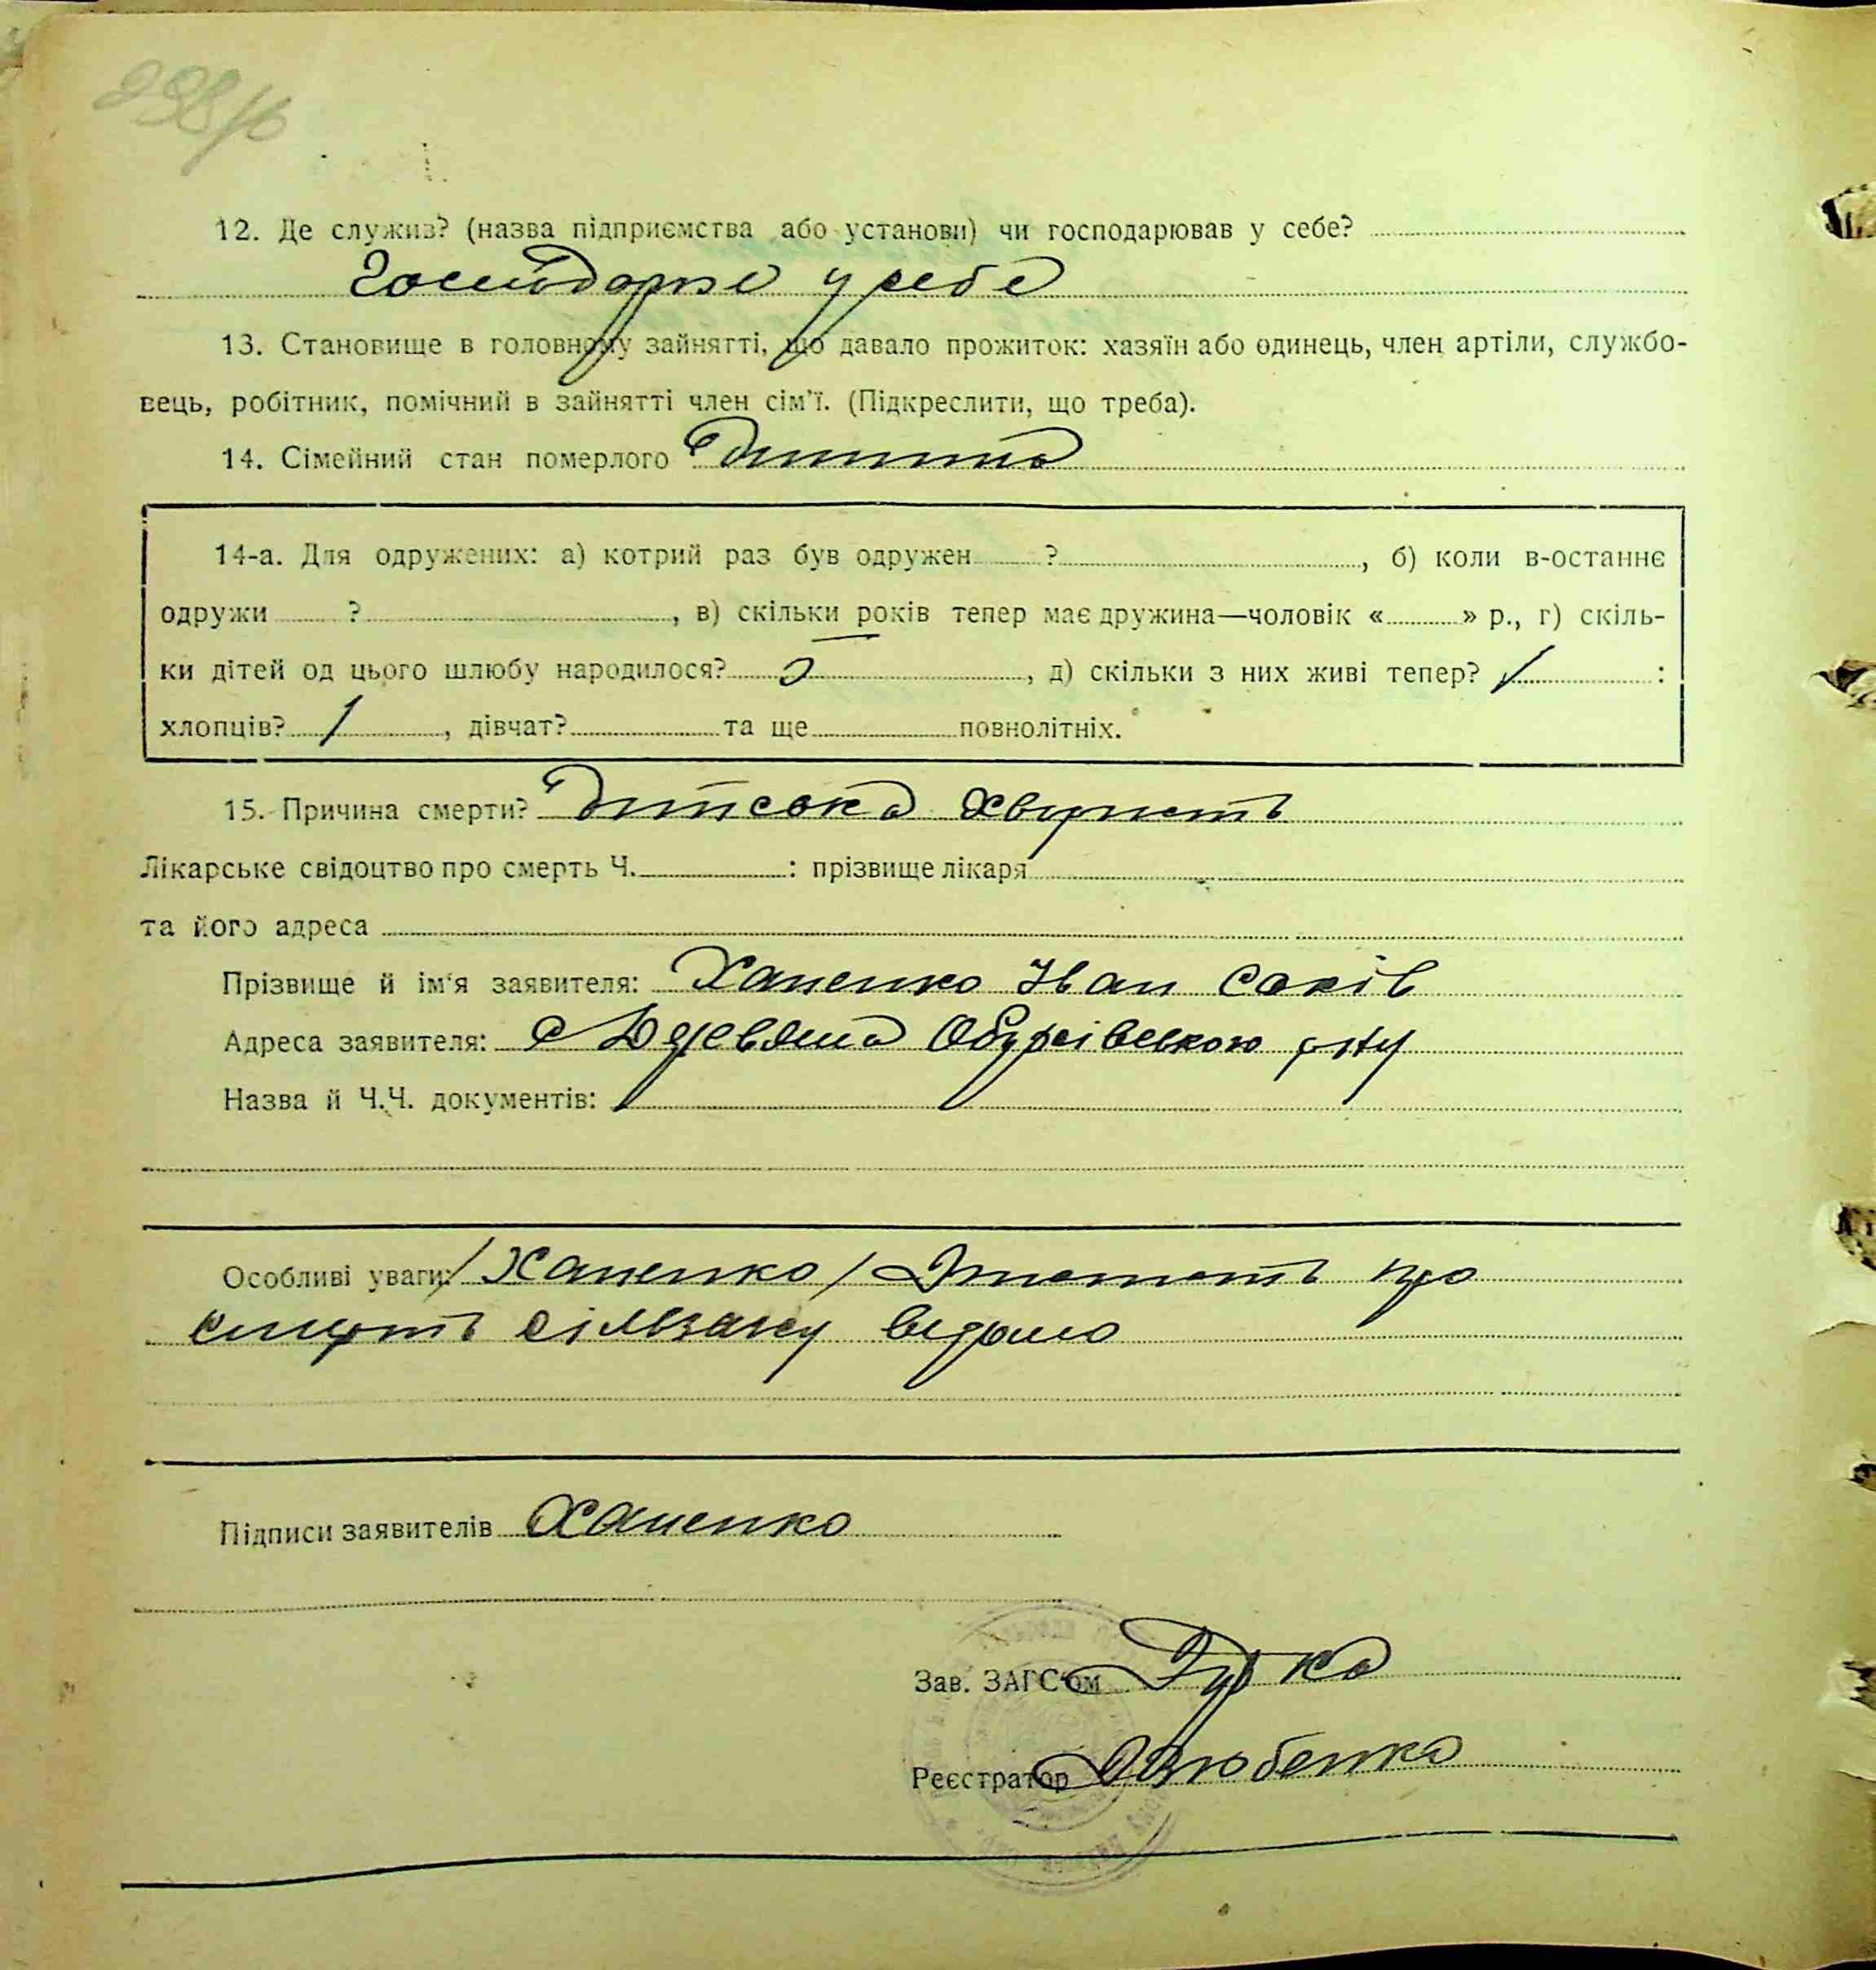 238/б
12. Де служив? (назва підприємства або установи) чи господарював у себе?
Господарює у себе
13. Становище в головному зайнятті, що давало прожиток: хазяїн або одинець, член артіли, службо-
вець, робітник, помічний в зайнятті член сім'ї. (Підкреслити, що треба).
14. Сімейний стан померлого Дитина
14-а. Для одружених: а) котрий раз був одружен ? , б) коли в-останнє
одружи ? , в) скільки років тепер має дружина—чоловік « » р., г) скіль-
ки дітей од цього шлюбу народилося? 5 , д) скільки з них живі тепер? 1 :
хлопців? 1 , дівчат? та ще повнолітніх.
15. Причина смерти? Дитська хворість
Лікарське свідоцтво про смерть Ч. : прізвище лікаря
та його адреса
Прізвище й ім'я заявителя: Ханенко Іван Саків
Адреса заявителя: с Деревяна Обухівського р-ну
Назва й Ч.Ч. документів:
Особливі уваги: /Ханенко/ про
смерть відомо
Підписи заявителів Ханенко
Зав. ЗАГС'ом
Реєстратор Дзюбенко